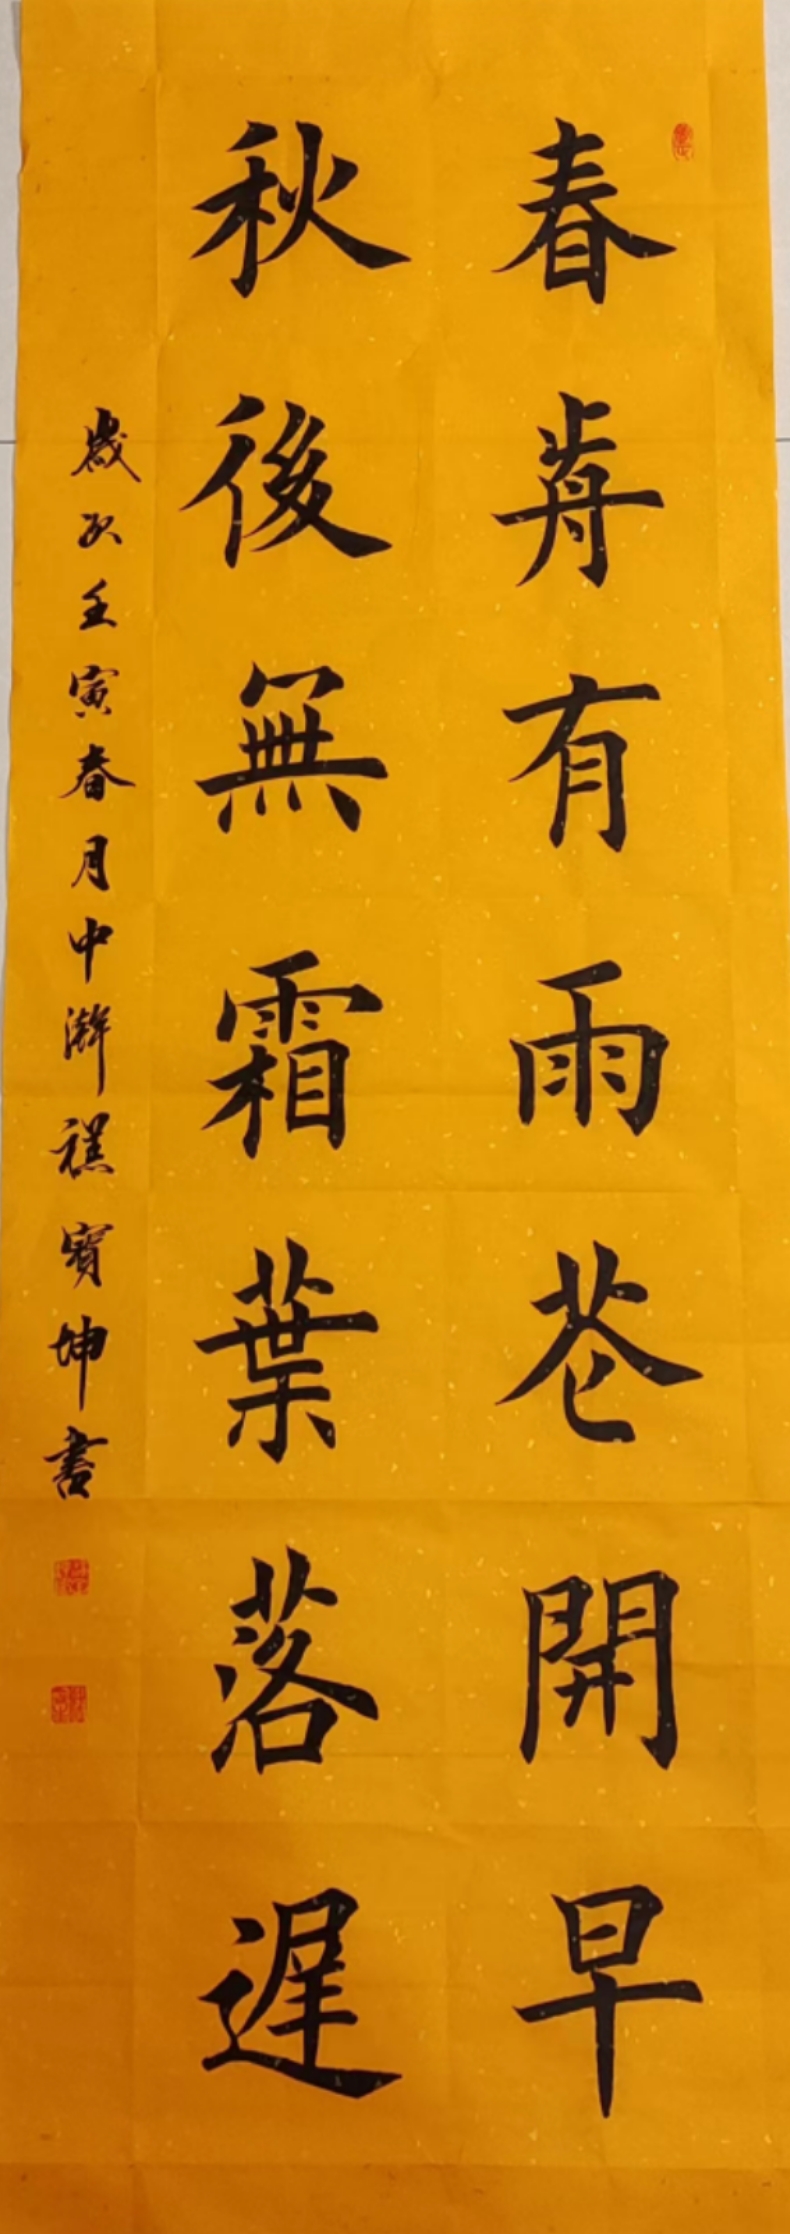 春歬有雨苍開早
秋後無霜葉落遲
歲次壬寅春月中澣禚寳坤書